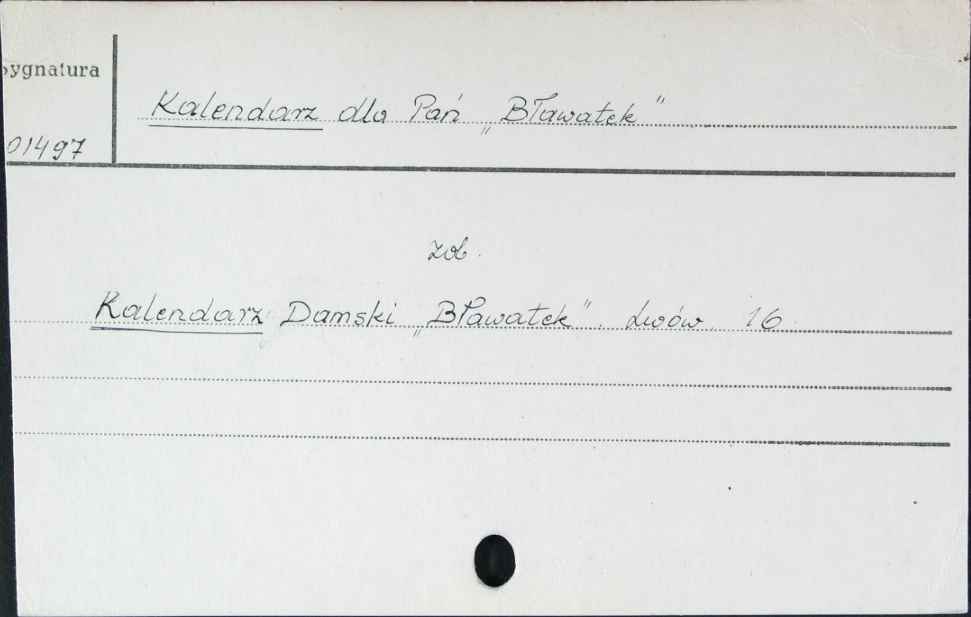 Sygnatura
Kalendarz dla Pań „Bławatek"
01497
zob.
Kalendarz Damski „Bławatek". Lwów. 16